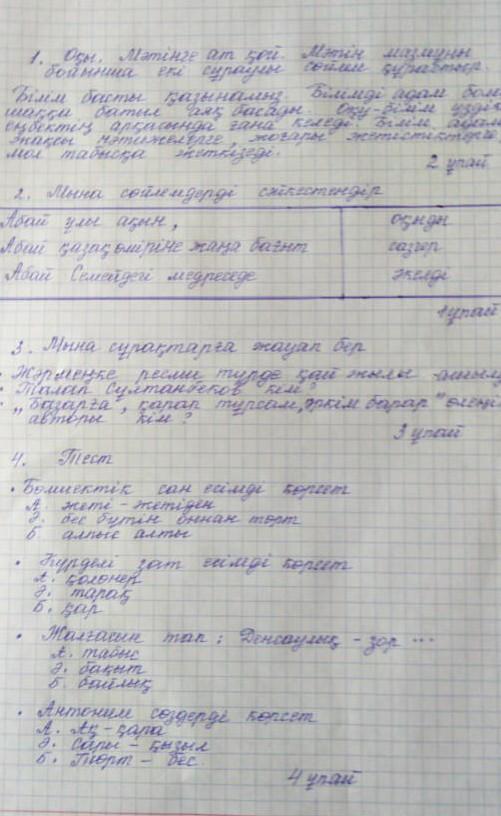 1. Оқы. Мәтінге ат қой. Мәтін мазмұны
бойынша екі сұраулы сөйлем құрастыр.
Білім басты қазынамыз. Білімді адам бол
шаққа батыл аяқ басады. Оқу-білім үздік
еңбектің арқасында ғана келеді. Білім адам
жақсы нәтижелерге, жоғары жетістіктерге,
мол табысқа жеткізеді.
2 ұпай
2. Мына сөйлемдерді сәйкестендір
Абай ұлы ақын, оқыды
Абай қазақ өміріне жаңа бағыт сазгер
Абай Семейдегі медреседе әкелді
1 ұпай
3. Мына сұрақтарға жауап бер
Жәрмеңке ресми түрде қай жылы ашыл
Талап Сұлтанбеков кім?
"Базарға, қарап тұрсам, әркім барар" өлең
авторы кім?
3 ұпай
4. Тест
• Бөлшектік сан есімді көрсет
А. жеті - жетіден
Ә. бес бүтін оннан төрт
Б. алпыс алты
• Күрделі зат есімді көрсет
А. қолөнер
Ә. тарақ
Б. қар
• Жалғасын тап: Денсаулық - зор ...
А. табыс
Ә. бақыт
Б. байлық
• Антоним сөздерді көрсет
А. Ақ-қара
Ә. Сары - қызыл
Б. Төрт - бес.
4 ұпай